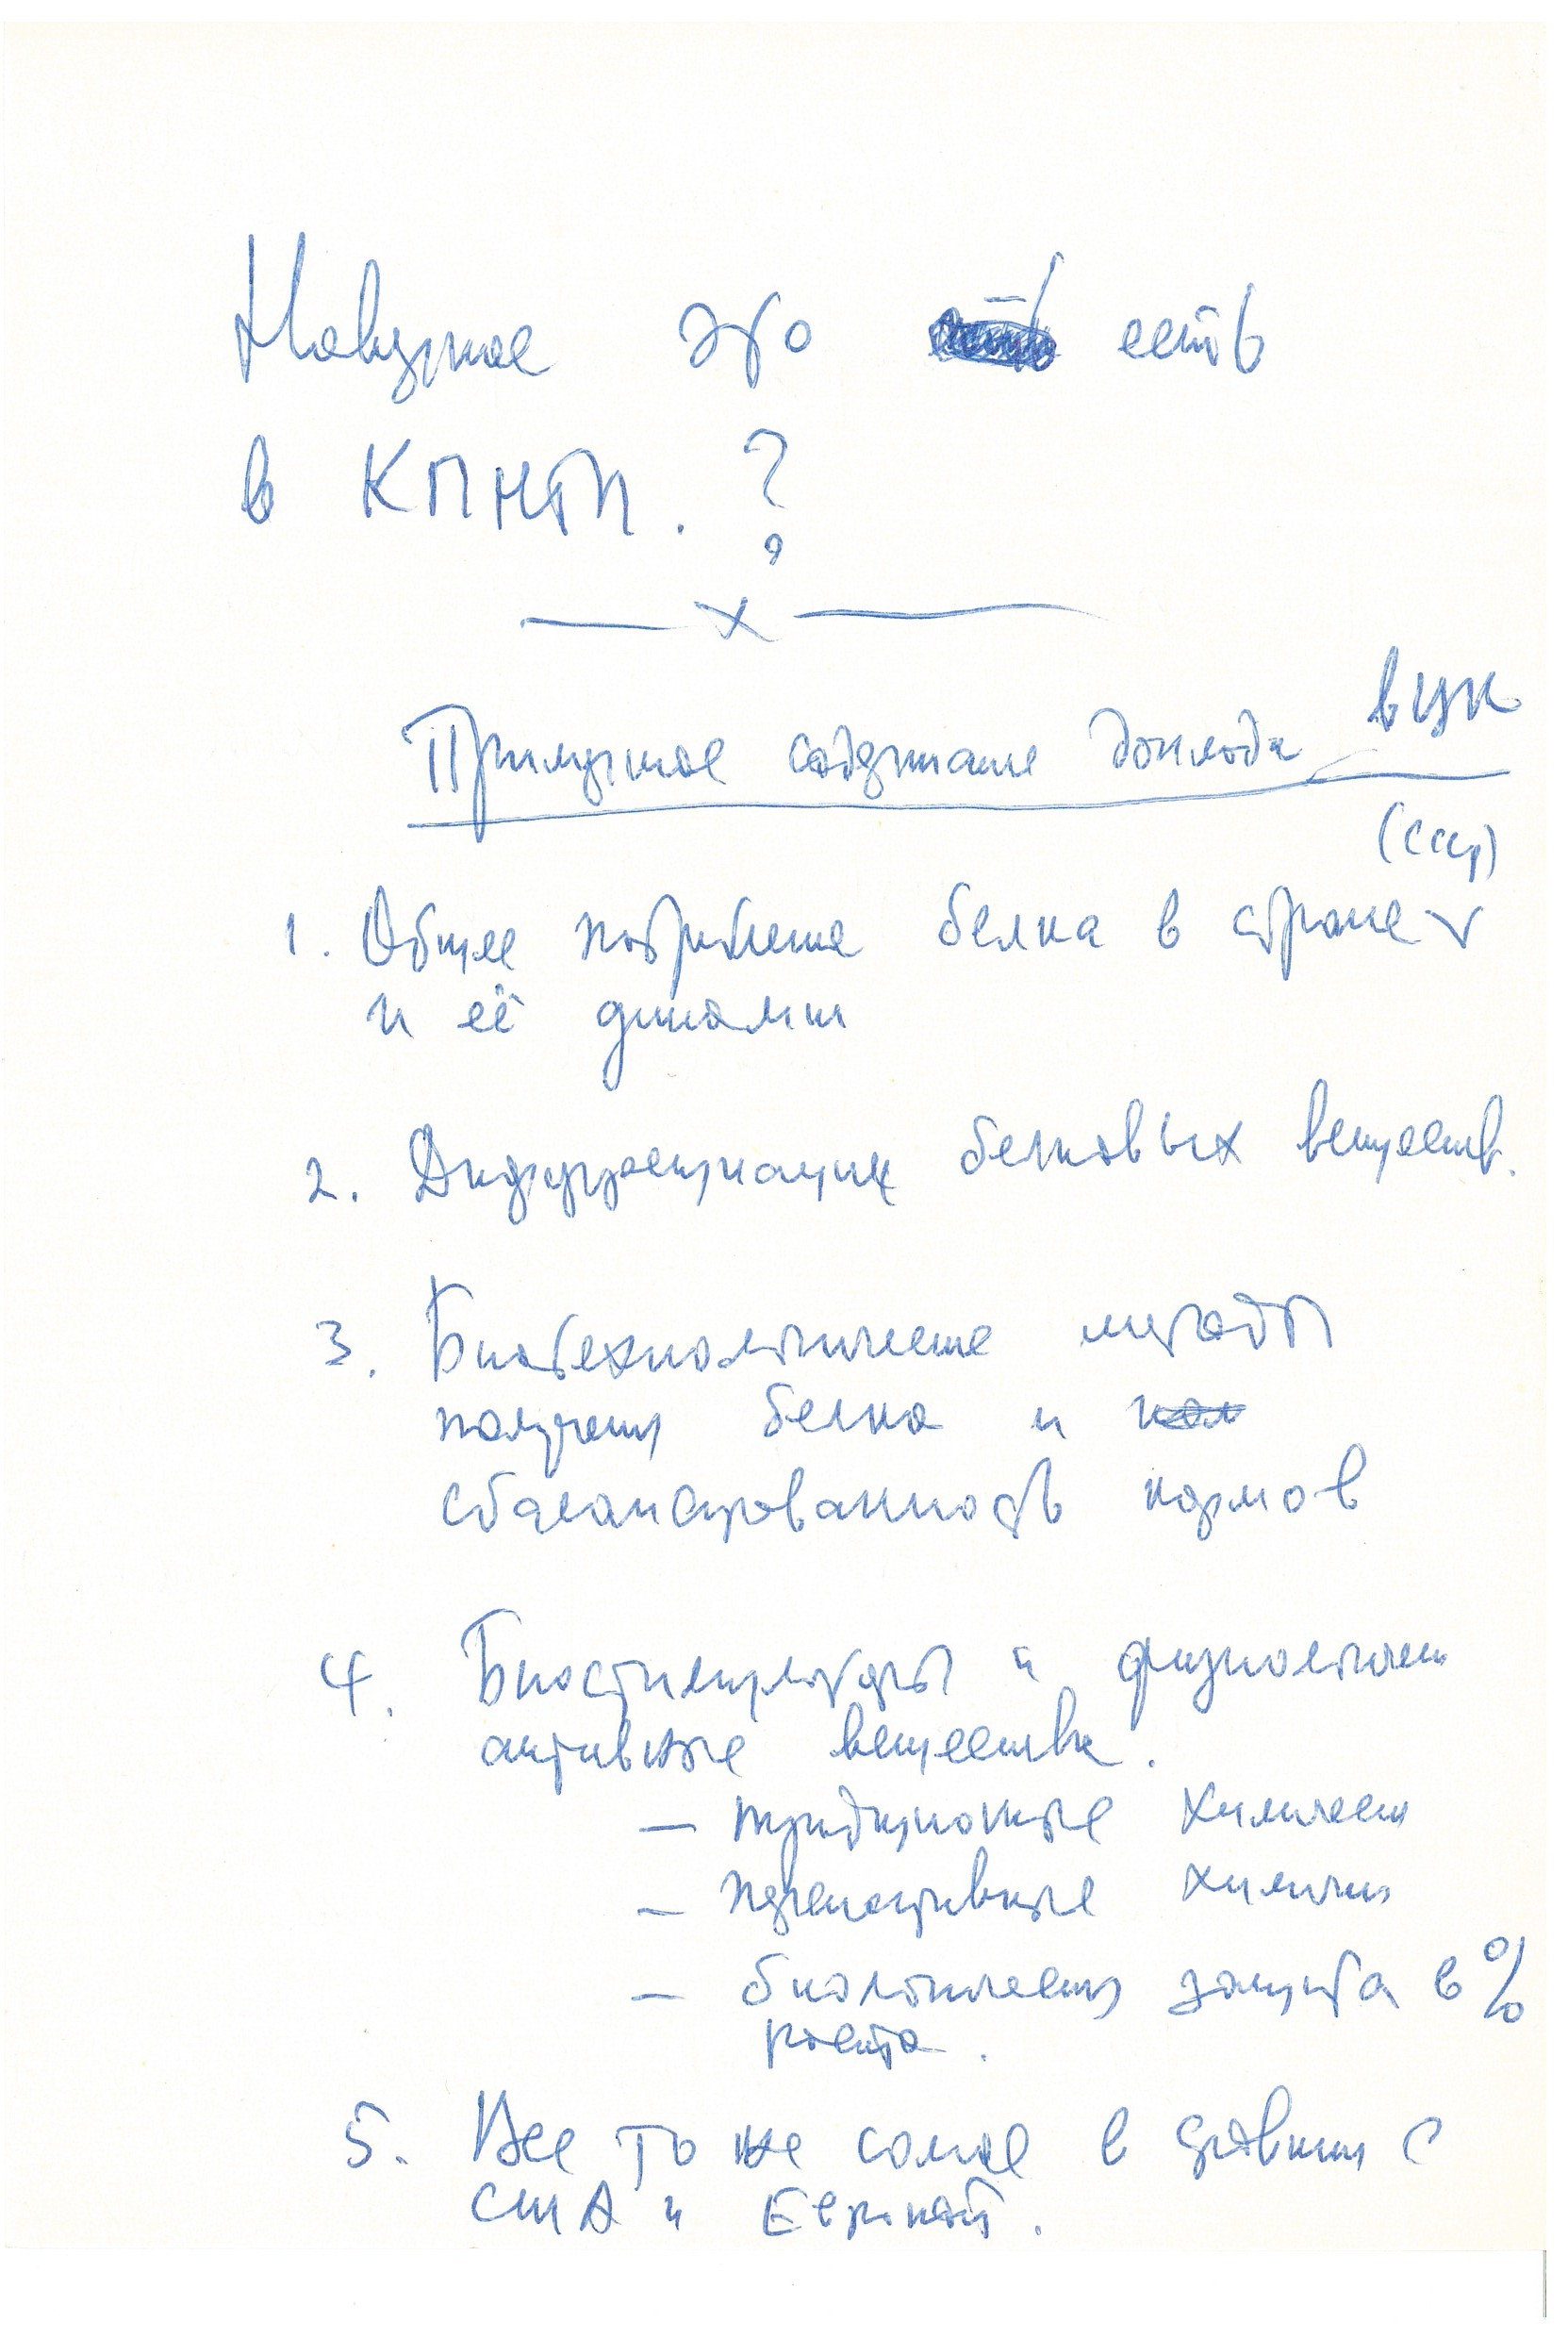 это есть
в КПНТП. ?
— х —
Примерное содержание доклада в ЦК
(СССР)
1. Общее потребление белка в стране
и её динамик
2. Дифференциация белковых веществ.
3. Биотехнологические методы
получения белка и
сбалансированность кормов
4. Биостимуляторы и физиологически
активные вещества.
— традиционные химически
— химич
— биологическая защита в %
роста.
5. Все то же самое в сравнении с
США и Европой.